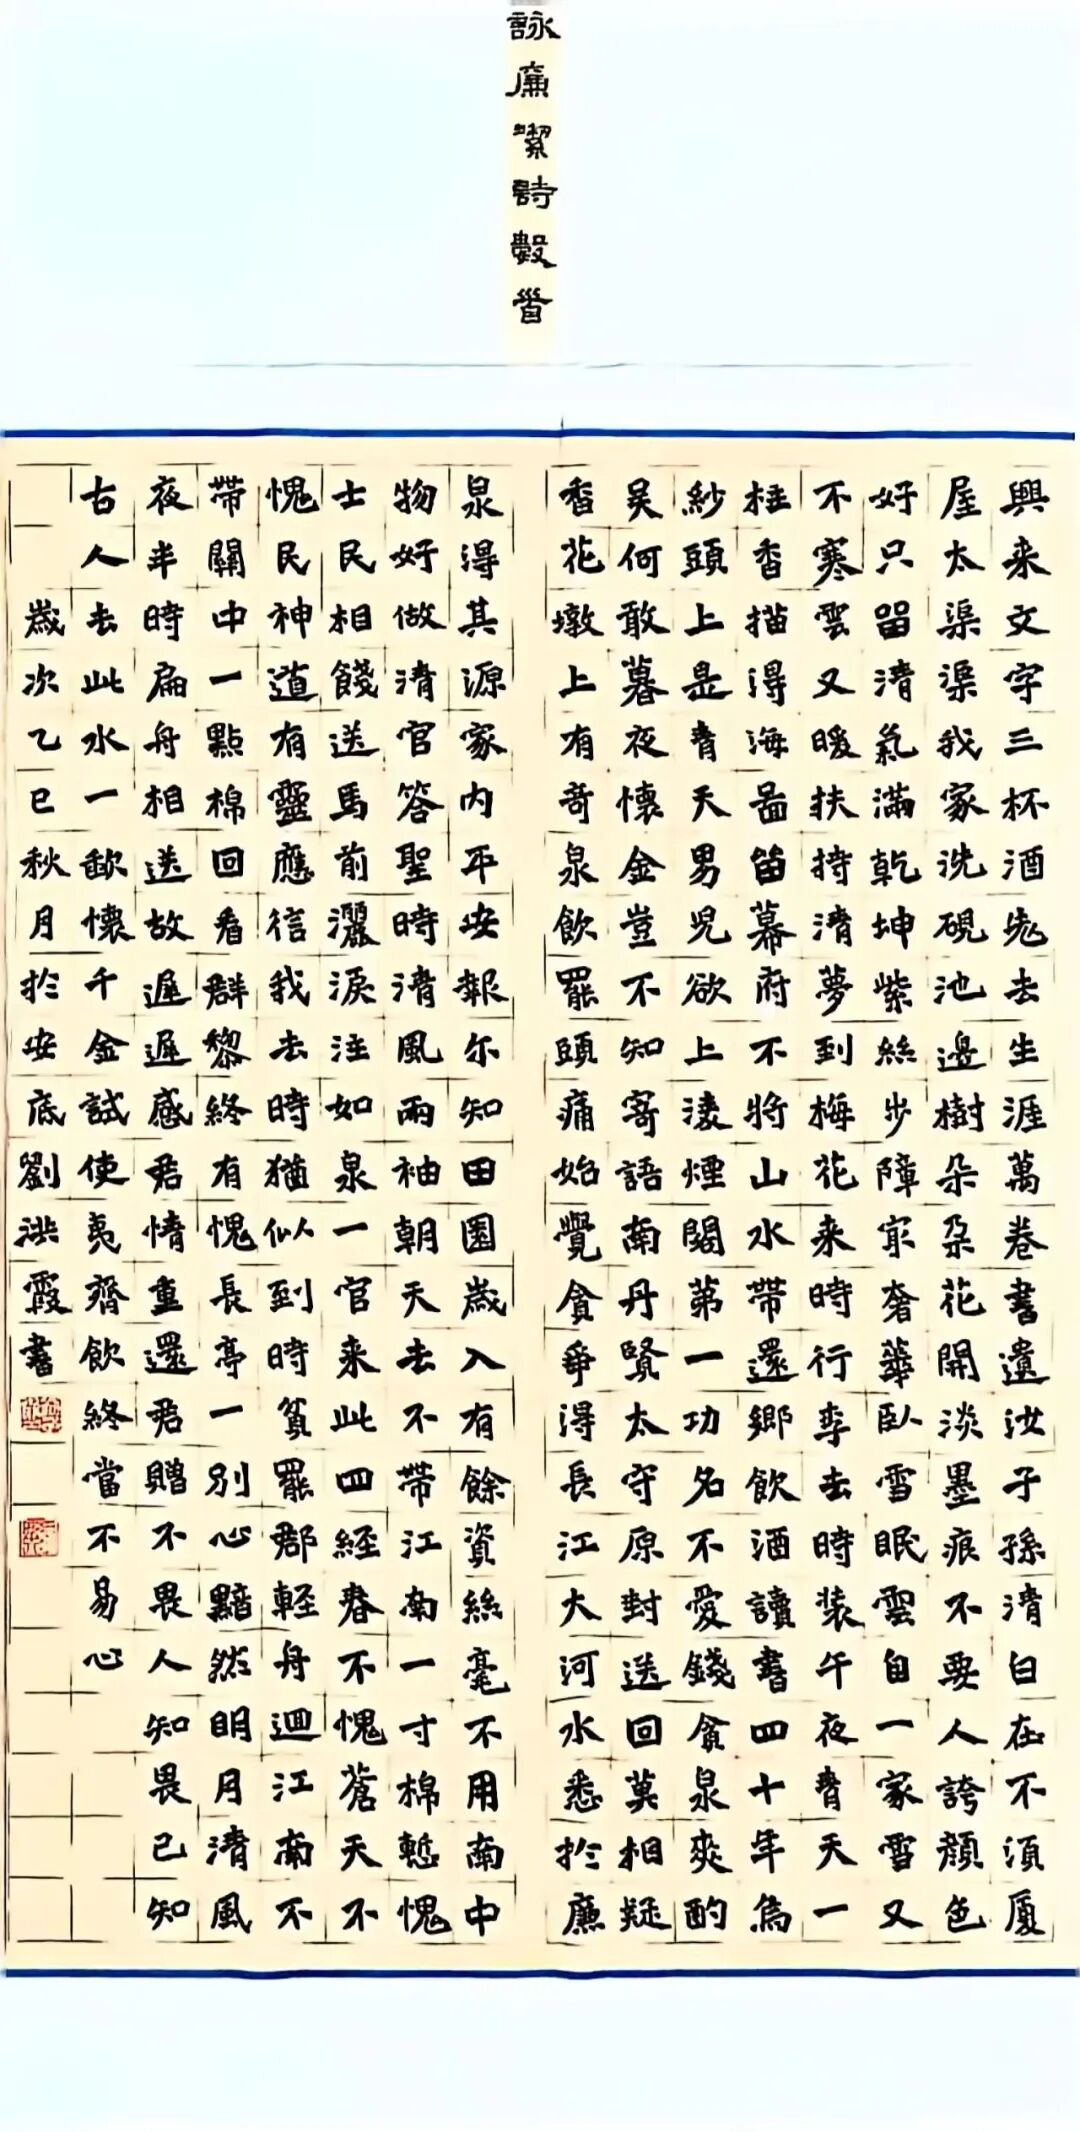 詠廉絜詩數首
興来文字三杯酒老去生涯萬卷書遺汝子孫清白在不須厦
屋太渠渠我家洗硯池邊樹朵朵花開淡墨痕不要人誇顏色
好只留清氣滿乾坤紫絲步障冣奢華臥雪眠雲自一家雪又
不寒雲又暖扶持清夢到梅花来時行李去時装午夜青天一
柱香描得海啚笛幕府不將山水帶還鄉飲酒讀書四十年烏
紗頭上是青天男兒欲上凌煙閣第一功名不愛錢貪泉爽酌
吴何敢暮夜懷金豈不知寄語南丹賢太守原封送回莫相疑
香花墩上有奇泉飲罷頭痛始覺貪爭得長江大河水悉於廉
泉得其源家内平安報尔知田園歲入有餘資絲毫不用南中
物好做清官答聖時清風兩袖朝天去不帶江南一寸棉慙愧
士民相餞送馬前灑淚注如泉一官来此四经春不愧蒼天不
愧民神道有靈應信我去時猶似到時貧罷郡輕舟迴江南不
帶關中一點棉回看群黎終有愧長亭一別心黯然明月清風
夜半時扁舟相送故遲遲感君情重還君贈不畏人知畏己知
古人去此水一歃懷千金試使夷齊飲終當不易心
歲次乙巳秋月於安底劉洪霞書